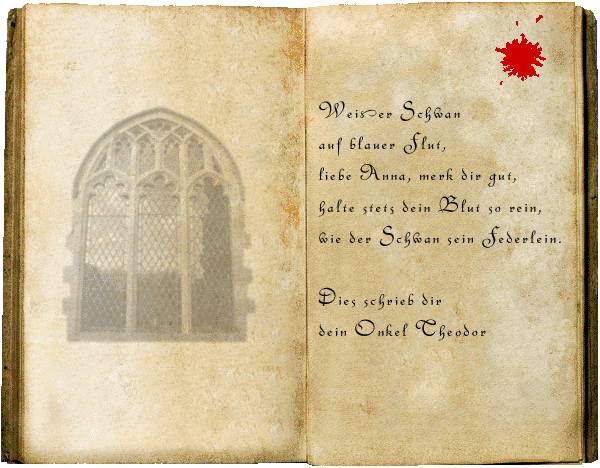 Weisser Schwan
auf blauer Flut,
liebe Anna, merk dir gut,
halte stets dein Blut so rein,
wie der Schwan sein Federlein.
Dies schrieb dir
dein Onkel Theodor